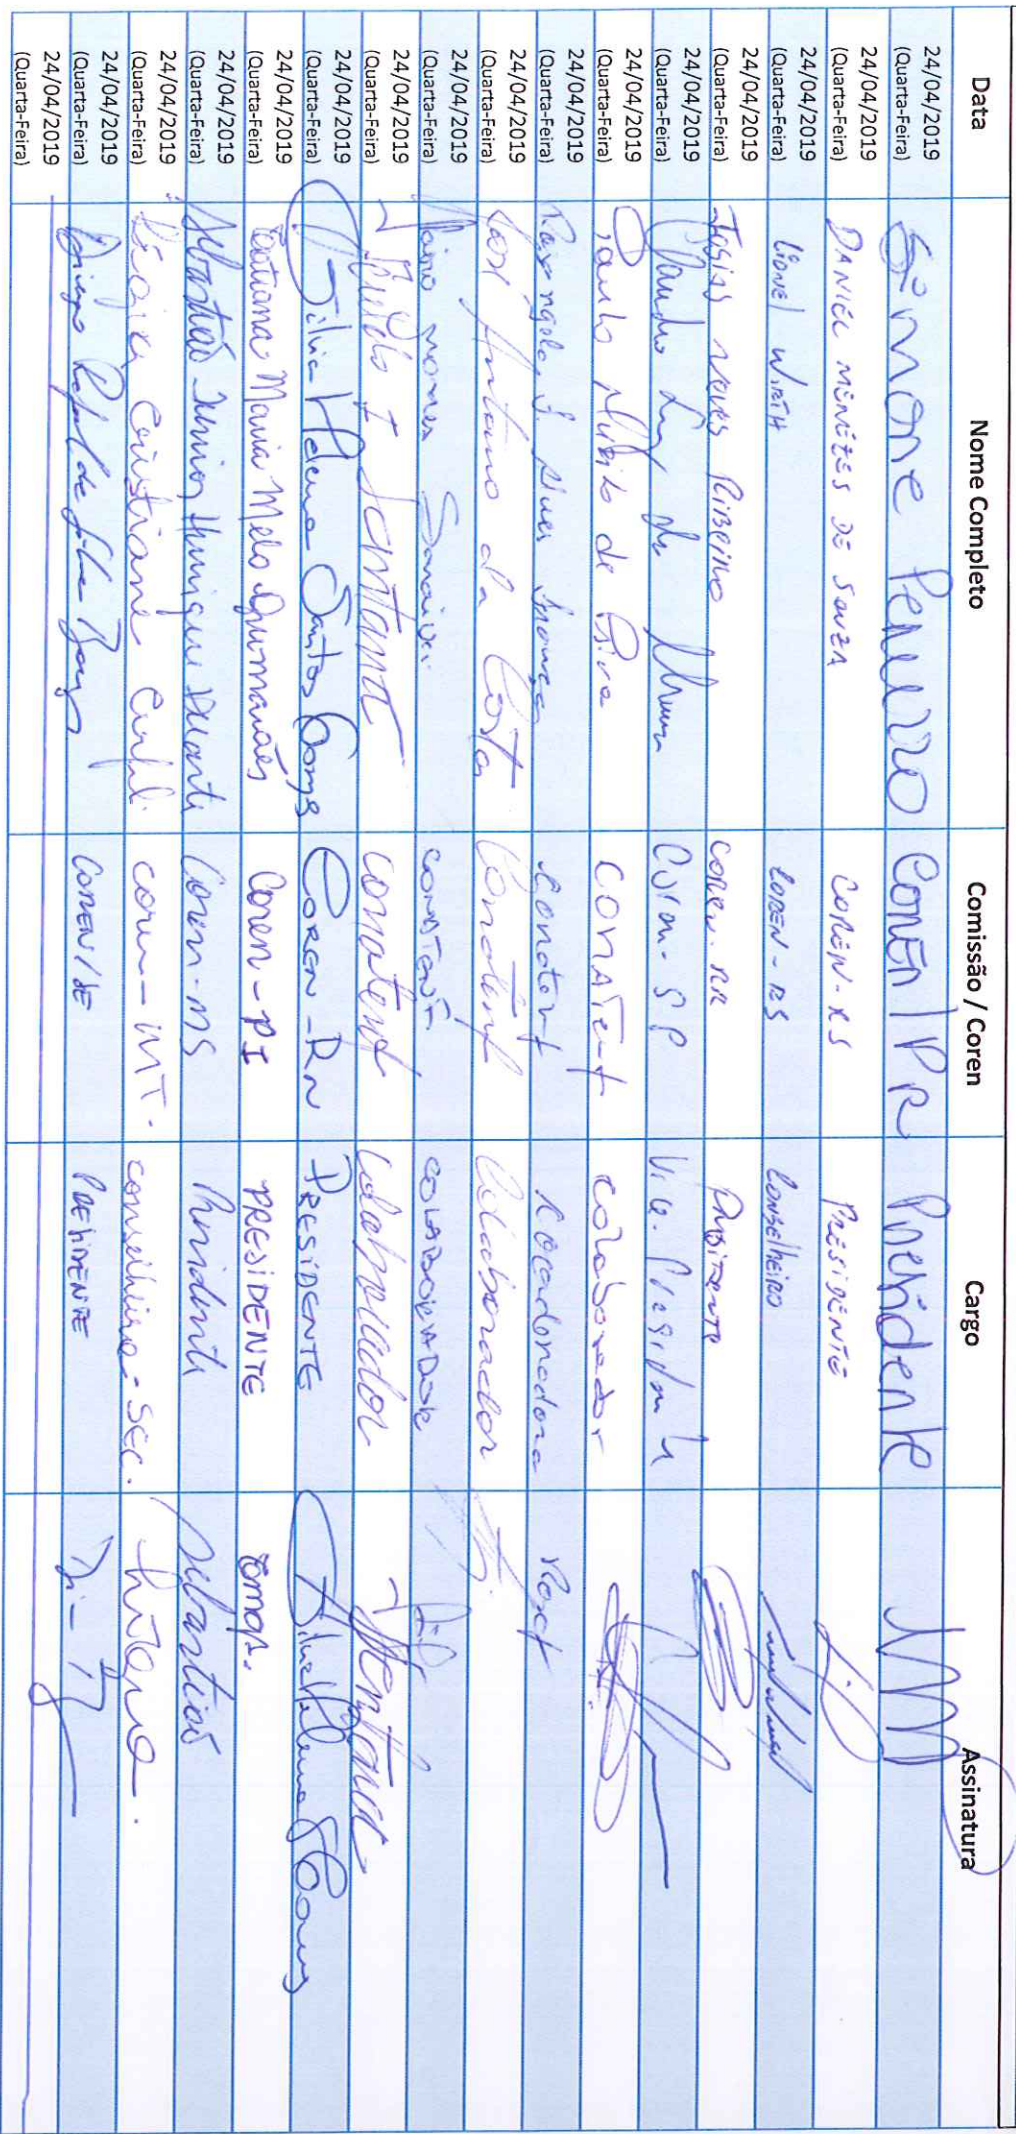 Data Nome Completo Comissão / Coren Cargo Assinatura
24/04/2019 (Quarta-Feira) Simone Peruzzo COREN/PR Presidente
24/04/2019 (Quarta-Feira) DANIEL MENEZES DE SOUZA COREN-RS PRESIDENTE
24/04/2019 (Quarta-Feira) Lionel WIRTH COREN-RS Conselheiro
24/04/2019 (Quarta-Feira) Josias Neves Ribeiro COREN-RR Presidente
24/04/2019 (Quarta-Feira) Coren-SP Vice-Presidente
24/04/2019 (Quarta-Feira) Paulo Murilo de Paiva CONATENF Colaborador
24/04/2019 (Quarta-Feira) Rosangela Conatenf Coordenadora
24/04/2019 (Quarta-Feira) José Antonio da Costa Conatenf Colaborador
24/04/2019 (Quarta-Feira) CONATENF COLABORADOR
24/04/2019 (Quarta-Feira) Conatenf Colaborador
24/04/2019 (Quarta-Feira) Silvia Helena Santos Gomes COREN-RN PRESIDENTE Silvia Helena S Gomes
24/04/2019 (Quarta-Feira) Tatiana Maria Melo Guimarães Coren-PI PRESIDENTE TMMG.
24/04/2019 (Quarta-Feira) Sebastião Junior Henrique Duarte Coren-MS Presidente Sebastião
24/04/2019 (Quarta-Feira) Cristiane Coren-MT. conselheira-Sec.
24/04/2019 (Quarta-Feira) Diego Rafael de COREN/SE PRESIDENTE
24/04/2019 (Quarta-Feira)